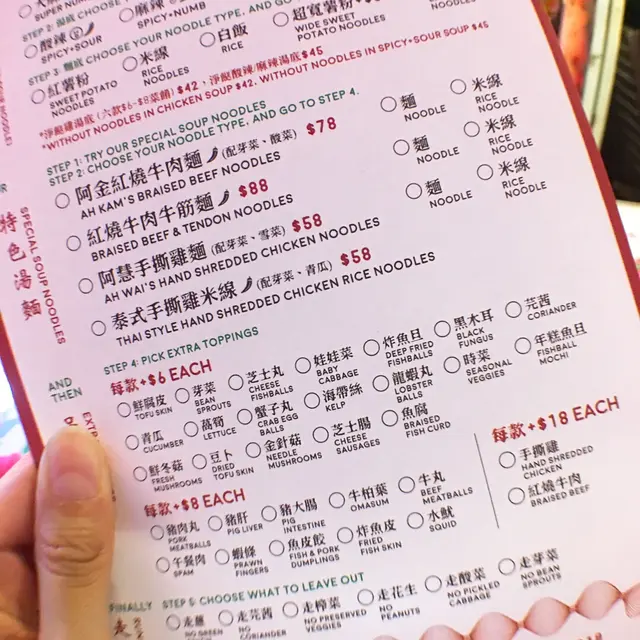 SUPER NUMB
STEP 2: CHOOSE YOUR NOODLE TYPE, AND GO
酸辣
SPICY+SOUR
麻辣
SPICY+NUMB
STEP 3: 麵底 CHOOSE YOUR NOODLE TYPE, AND GO TO STEP
紅薯粉
SWEET POTATO
NOODLES
米線
RICE
NOODLES
白飯
RICE
超寬薯粉
WIDE SWEET
POTATO NOODLES
NOODLES
*淨麵雞湯底 (六款$6-$8菜餚) $42，淨麵酸辣/麻辣湯底$45
*WITHOUT NOODLES IN CHICKEN SOUP $42. WITHOUT NOODLES IN SPICY+SOUR SOUP $45
特色湯麵
SPECIAL SOUP NOODLES
STEP 1: TRY OUR SPECIAL SOUP NOODLES
STEP 2: CHOOSE YOUR NOODLE TYPE, AND GO TO STEP 4.
阿金紅燒牛肉麵 (配芽菜、酸菜) $78
AH KAM'S BRAISED BEEF NOODLES
麵
NOODLE
米線
RICE
NOODLE
紅燒牛肉牛筋麵 $88
BRAISED BEEF & TENDON NOODLES
麵
NOODLE
米線
RICE
NOODLE
阿慧手撕雞麵 (配芽菜、雪菜) $58
AH WAI'S HAND SHREDDED CHICKEN NOODLES
麵
NOODLE
米線
RICE
NOODLE
泰式手撕雞米線 (配芽菜、青瓜) $58
THAI STYLE HAND SHREDDED CHICKEN RICE NOODLES
AND
THEN
STEP 4: PICK EXTRA TOPPINGS
每款+$6 EACH
鮮腐皮
TOFU SKIN
芽菜
BEAN
SPROUTS
芝士丸
CHEESE
FISHBALLS
娃娃菜
BABY
CABBAGE
炸魚旦
DEEP FRIED
FISHBALLS
黑木耳
BLACK
FUNGUS
芫茜
CORIANDER
青瓜
CUCUMBER
萵筍
LETTUCE
蟹子丸
CRAB EGG
BALLS
海帶絲
KELP
龍蝦丸
LOBSTER
BALLS
時菜
SEASONAL
VEGGIES
年糕魚旦
FISHBALL
MOCHI
鮮冬菇
FRESH
MUSHROOMS
豆卜
DRIED
TOFU SKIN
金針菇
NEEDLE
MUSHROOMS
芝士腸
CHEESE
SAUSAGES
魚腐
BRAISED
FISH CURD
每款+$8 EACH
豬肉丸
PORK
MEATBALLS
豬肝
PIG LIVER
豬大腸
PIG
INTESTINE
牛柏葉
OMASUM
牛丸
BEEF
MEATBALLS
午餐肉
SPAM
蝦條
PRAWN
FINGERS
魚皮餃
FISH & PORK
DUMPLINGS
炸魚皮
FRIED
FISH SKIN
水魷
SQUID
每款+$18 EACH
手撕雞
HAND SHREDDED
CHICKEN
紅燒牛肉
BRAISED BEEF
FINALLY
走
STEP 5: CHOOSE WHAT TO LEAVE OUT
走蔥
NO GREEN
走芫茜
NO
CORIANDER
走榨菜
NO PRESERVED
VEGGIES
走花生
NO
PEANUTS
走酸菜
NO PICKLED
CABBAGE
走芽菜
NO BEAN
SPROUTS